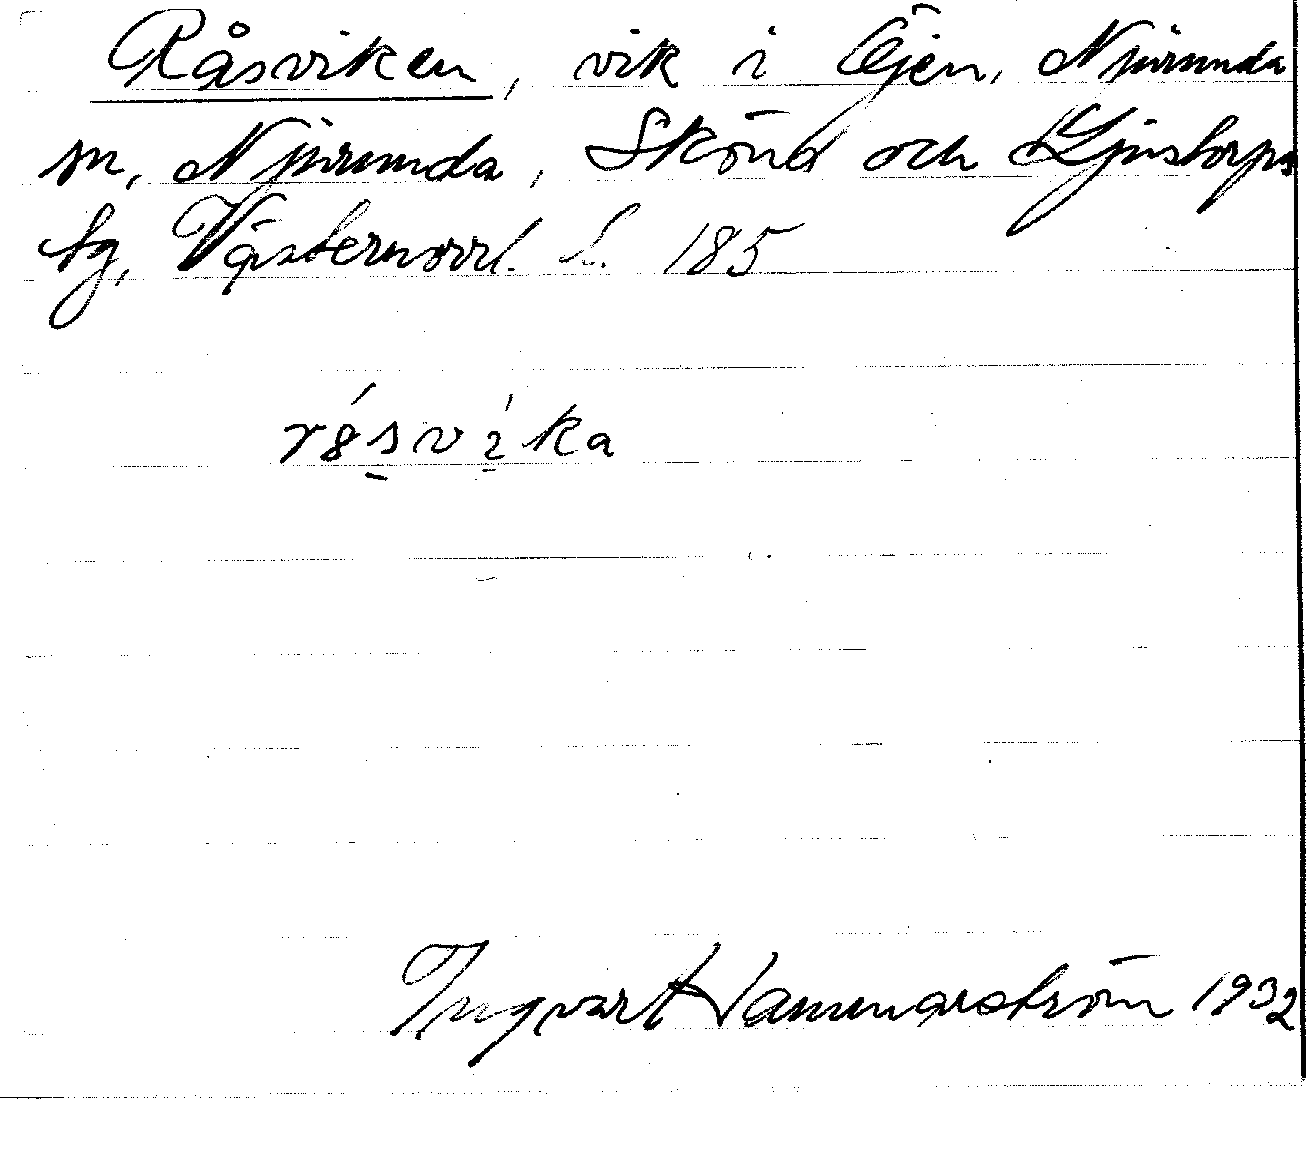 Råsviken, vik i Öjen, Njurunda
sn, Njurunda, Skönd och Ljustorps
tg, Västernorrl. L. 185
rósvíka
Ingvart Hammarström 1932